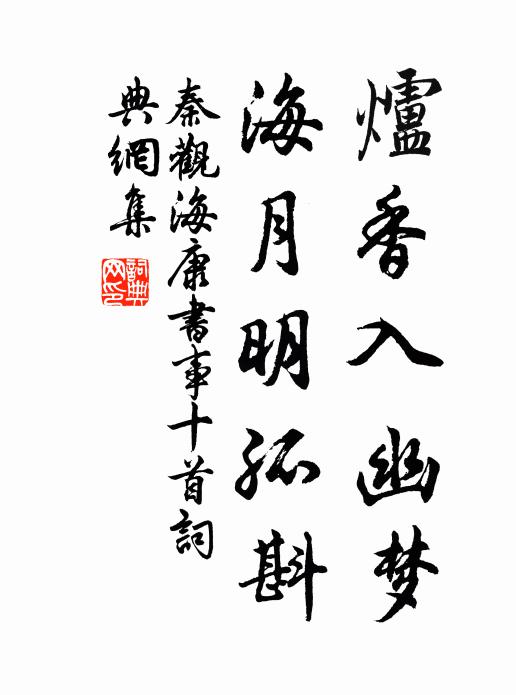 爐香入幽梦
海月明孤斟
秦觀海康書事十首詞
典網集
詞典
网印